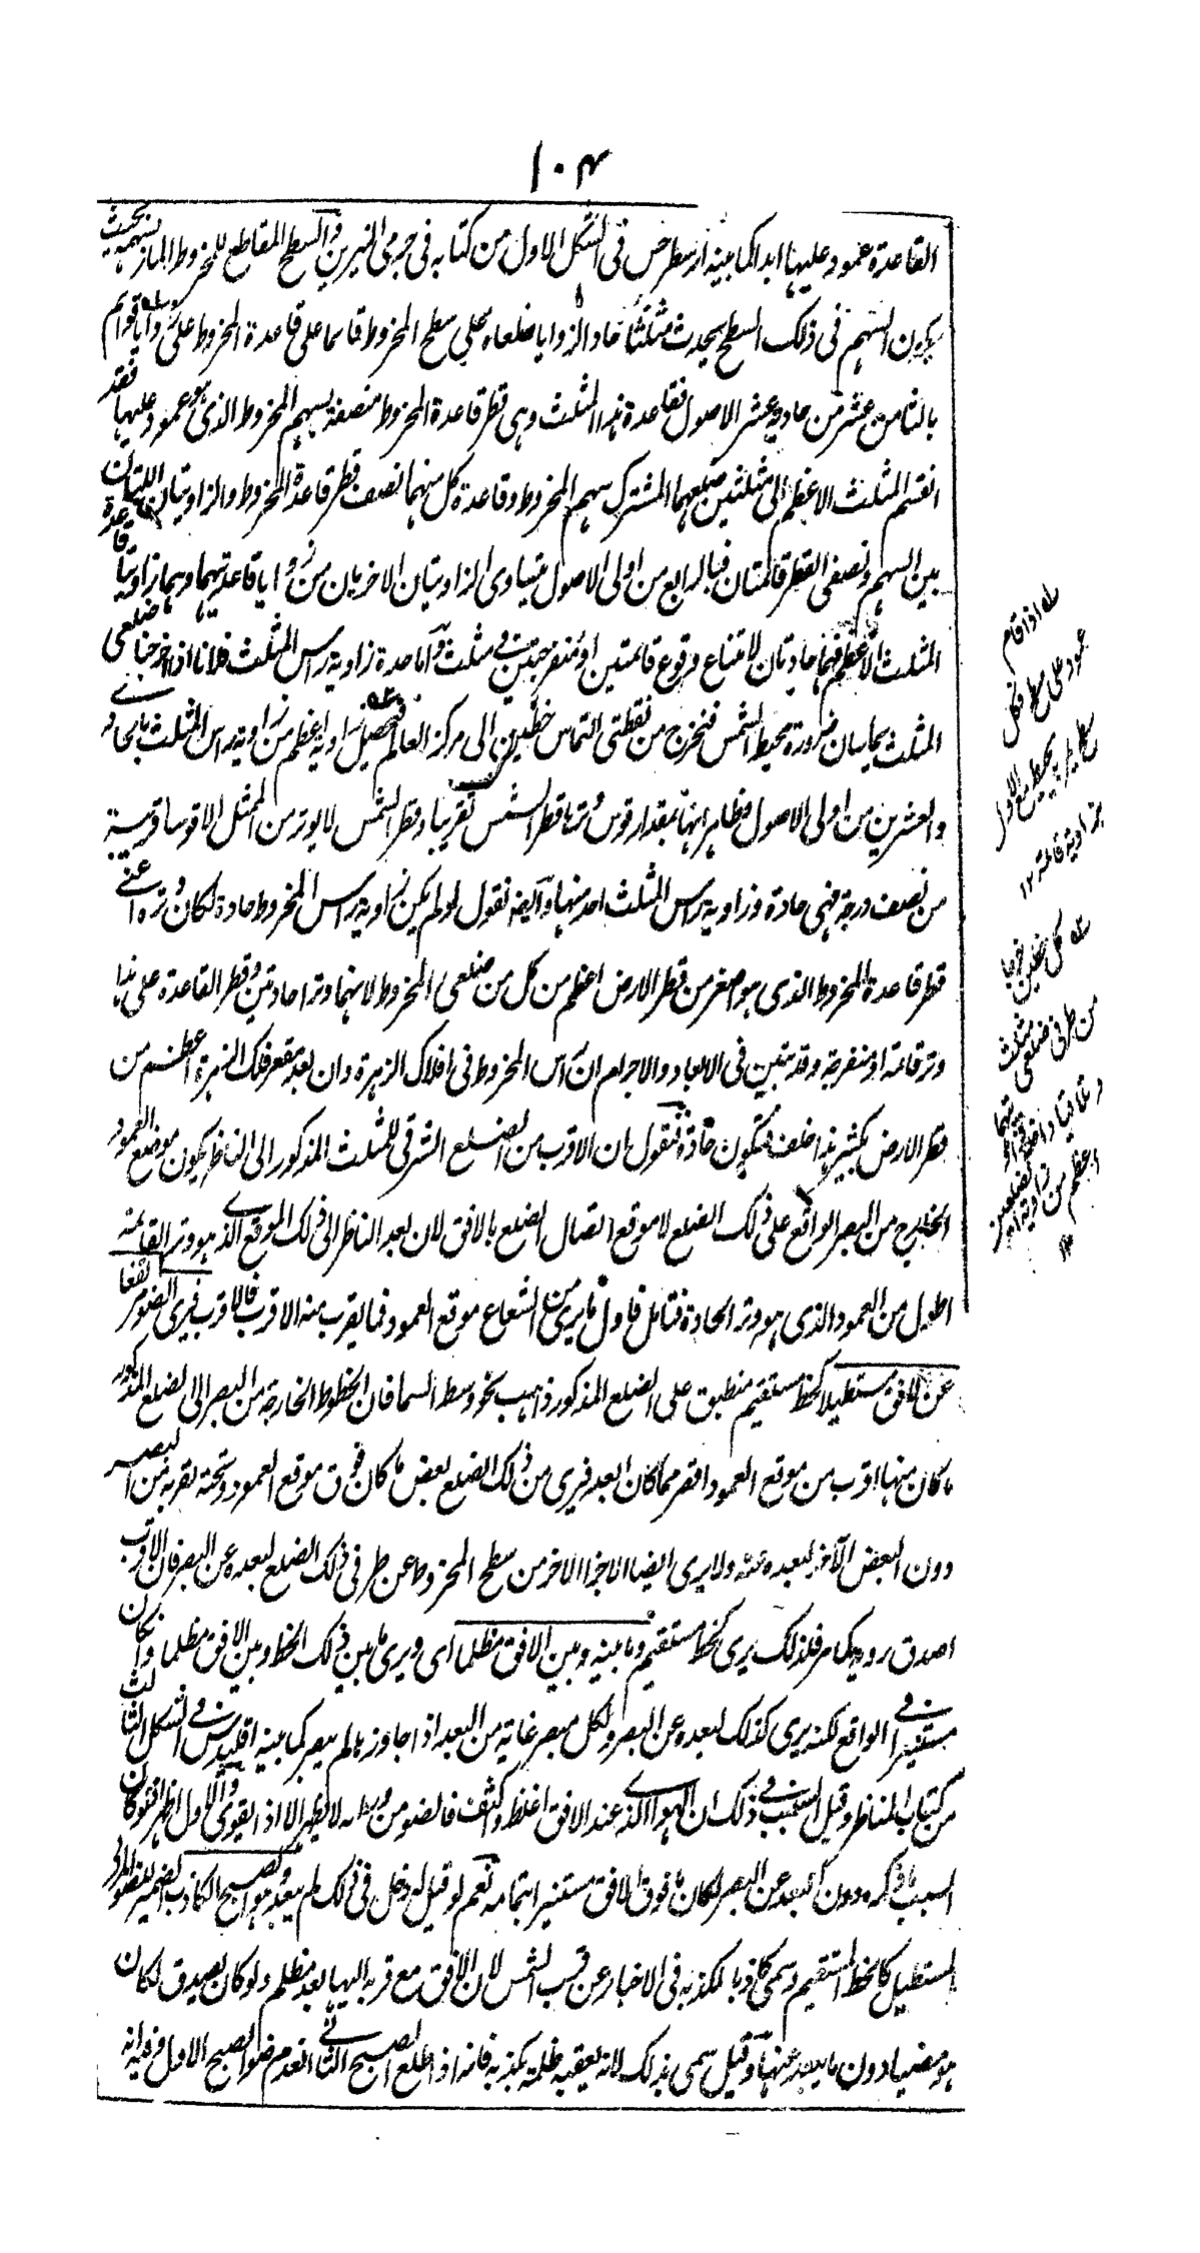 ١٠٤
القاعدة عمود عليها ابدا كما بينه ارسطرخس فى الشكل الاول من كتابه فى جرمى النيرين والسطح المقاطع للمخروط المار بسهمه بحيث
يكون السهم فى ذلك السطح يحدث مثلثا حاد الزوايا ضلعاه على سطح المخروط قائما على قاعدة المخروط على زوايا قوائم
بالثامن عشر من حادية عشر الاصول فقاعدة هذا المثلث وهى قطر قاعدة المخروط منصفة بسهم المخروط الذى هو عمود عليها فقد
انقسم المثلث الاعظم الى مثلثين ضلعهما المشترك سهم المخروط وقاعدة كل منهما نصف قطر قاعدة المخروط والزاويتان اللتان
بين السهم ونصفى القطر قائمتان فبالرابع من اولى الاصول يتساوى الزاويتان الاخريان من زوايا قاعدتيهما وهما زاويتا قاعدة
المثلث الاعظم فهما حادتان لامتناع وقوع قائمتين او منفرجتين فى مثلث واما حدة زاوية راس المثلث فلانا اذا اخرجنا ضلعى
المثلث يماسان ضرورة محيط الشمس فنخرج من نقطتى التماس خطين الى مركز العالم فتحصل زاوية اعظم من زاوية راس المثلث بالحادى
والعشرين من اولى الاصول وظاهر انها بمقدار قوس وترها قطر الشمس تقريبا وقطر الشمس لا يوتر من الممثل الا قوسا قريبة
من نصف درجة فهى حادة وزاوية راس المثلث احد منها وايضا نقول لو لم يكن زاوية راس المخروط حادة لكان وتره اعنى
قطر قاعدة المخروط الذى هو اصغر من قطر الارض اعظم من كل من ضلعى المخروط لانهما وترا حادتين وقطر القاعدة على
وتر قائمة او منفرجة وقد تبين فى الابعاد والاجرام ان راس المخروط فى افلاك الزهرة وان بعد مقعر فلك الزهرة اعظم من
قطر الارض بكثير هذا خلف فتكون حادة فنقول ان الاقرب من الضلع الشرقى للمثلث المذكور الى الناظر يكون موضع العمود
الخارج من البصر الواقع على ذلك الضلع لا موقع اتصال الضلع بالافق لان بعد الناظر الى ذلك الموقع الذى هو وتر القائمة
اطول من العمود الذى هو وتر الحادة فتامل فاول ما يرى من الشعاع موقع العمود فما يقرب منه الاقرب فالاقرب فيرى الضوء مرتفعا
عن الافق مستطيلا كخط مستقيم منطبق على الضلع المذكور ذاهب نحو وسط السما فان الخطوط الخارجة من البصر الى الضلع المذكور
ما كان منها اقرب من موقع العمود اقصر مما كان ابعد فيرى من ذلك الضلع بعض ما كان فوق موقع العمود وتحته لقربه من البصر
دون البعض الآخر لبعده عنه ولا يرى ايضا الاجزا الاخر من سطح المخروط عن طرفى ذلك الضلع لبعده عن البصر فان الاقرب
اصدق روية كما مر فلذلك يرى كخط مستقيم وما بينه وبين الافق مظلما اى ويرى ما بين ذلك الخط وبين الافق مظلما وان كان
مستنيرا فى الواقع لكنه يرى كذلك لبعده عن البصر ولكل مبصر غاية من البعد اذا جاوزها لم يبصر كما بينه اقليدس فى الشكل الثالث
من كتاب المناظر وقيل السبب فى ذلك ان الهواء الذى عند الافق اغلظ واكثف فالضوء من ورائه لا يظهر الا اذا يقوى والاول اظهر اذ لو كان
السبب ما ذكره دون البعد عن البصر لكان ما فوق الافق مستنيرا بتمامه نعم لو قيل له دخل فى ذلك لم يبعد وهو الصبح الكاذب الضمير للضوء المرئى
المستطيل كالخط المستقيم وسمى كاذبا لكذبه فى الاخبار عن قرب الشمس لان الافق مع قربه اليها بعد مظلم ولو كان يصدق لكان
هو مضيا دون ما يبعد عنها وقيل سمى بذلك لانه يعقبه ظلمة يكذبه فانه اذا طلع الصبح الثانى انعدم ضوء الصبح الاول وفيه انه
له اذا قام
عمود على سطح فكل
سطح يمر به يحيط مع الاول
بزاوية قائمة ١٢
كل خطين خرجا
من طرفى ضلعى مثلث
اعظم من زاوية الضلعين
١٢